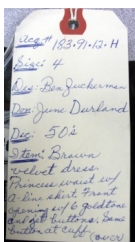 Acq# 183.91.12.H
Size: 4
Des: Ben Zuckerman
Don: June Durland
Dec: 50's
Item: Brown
velvet dress.
Princess waist w/
A-line skirt. Front
opening w/ 6 goldtone
buttons. Same
button at cuff.
(over)